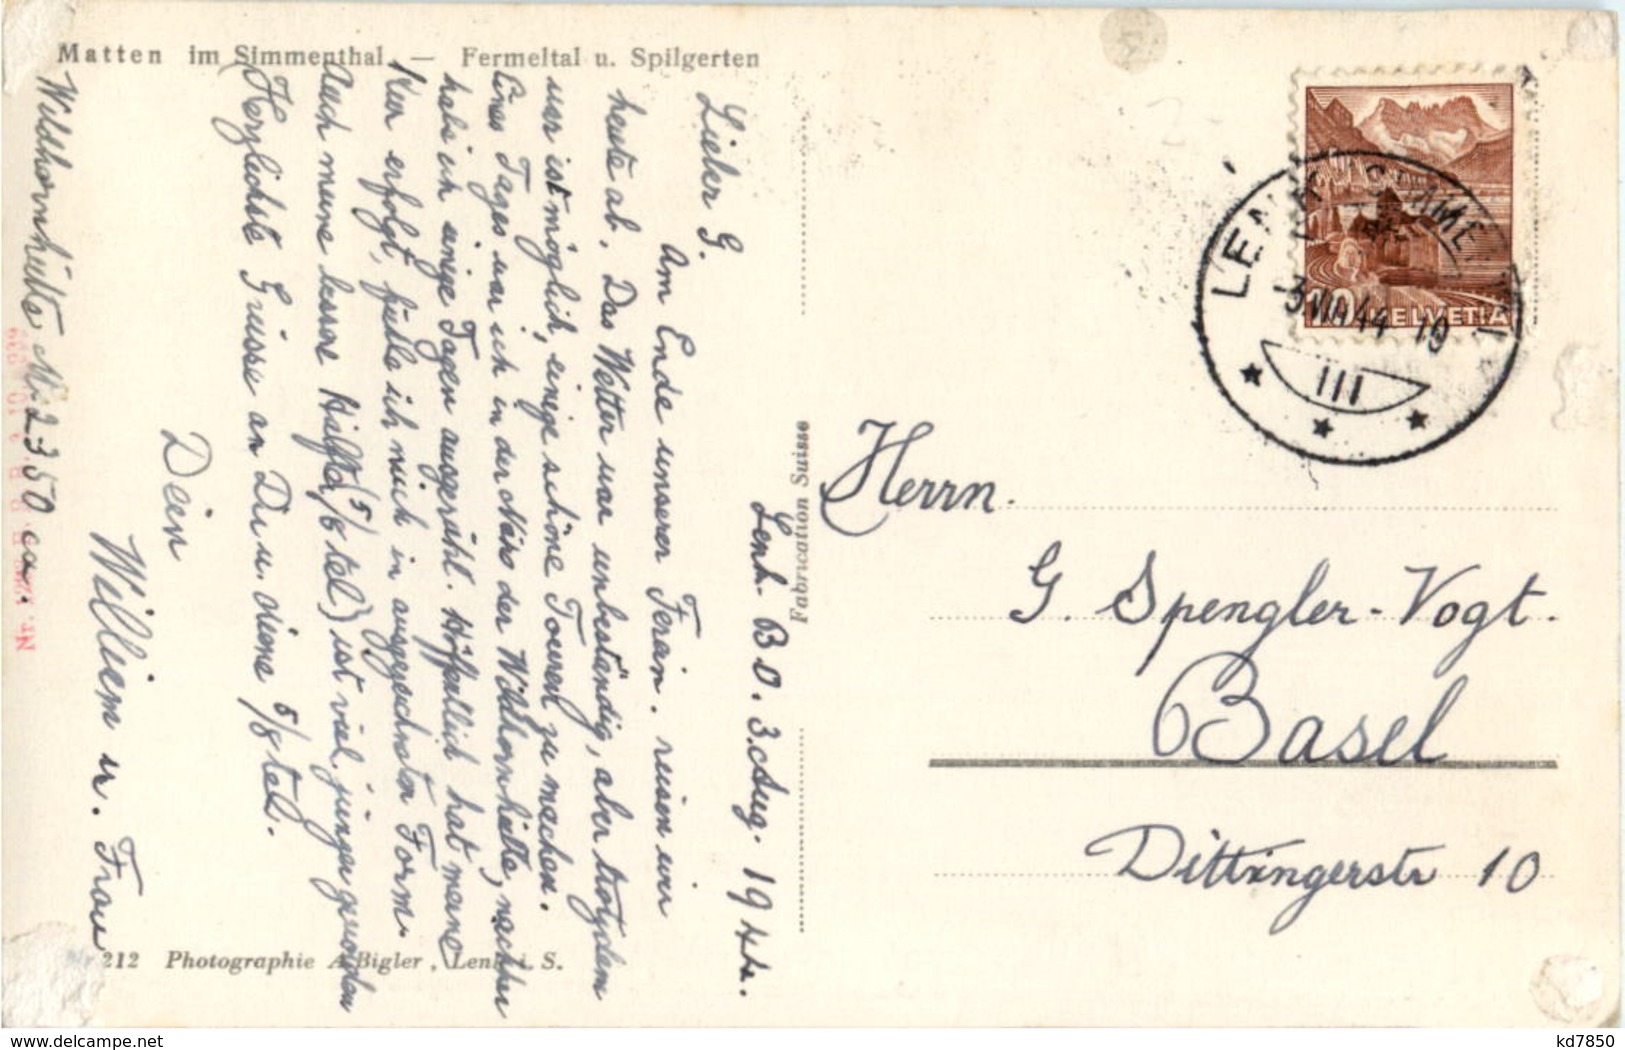 Matten im Simmenthal. — Fermeltal u. Spilgerten
Lenk. B O. 3. Aug. 1944.
Lieber G.
Am Ende unserer Ferien. reisen wir
heute ab. Das Wetter war unbeständig, aber trotzdem
war ist möglich, einige schöne Touren zu machen.
Eines Tages war ich in der Nähe der Wildhornhütte, nachher
habe ich einige Tagen ausgeruht. Hoffentlich hat meine
Kur erfolgt, fühle ich mich in ausgezeichneter Form.
Auch meine bessere Hälfte (5/8 tel) ist viel jünger geworden
Herzlichste Grüsse an Di u. deine 5/8 tel.
Dein
Williem u. Frau
Wildhornhütte M. 2350 ca.
212 Photographie A. Bigler, Lenk i. S.
Fabrication Suisse
LENK SIMMENTAL
-3.VIII.44 - 19
III
10 HELVETIA
Herrn.
G. Spengler-Vogt.
Basel
Dittingerstr 10
www.delcampe.net
kd7850